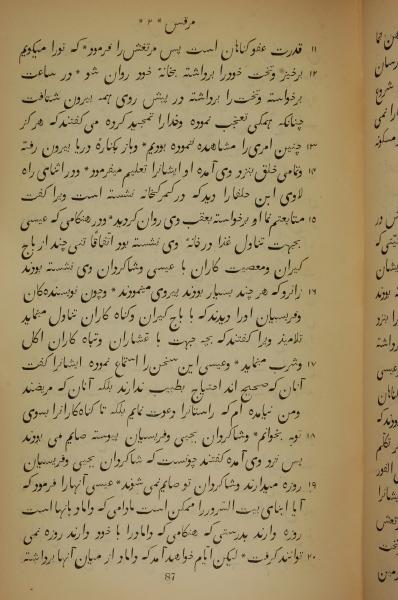 مرقس * ۲ *
۱۱ قدرت عفو گناهان است پس مرتعش را فرمود * که تورا میگویم
۱۲ برخیز و تخت خودرا برداشته بخانهٔ خود روان شو * در ساعت
برخواسته و تخت را برداشته در پیش روی همه بیرون شتافت
چنانکه همگی تعجب نموده و خدارا تمجید کرده می گفتند که هرگز
۱۳ چنین امری را مشاهده ننموده بودیم * و بار بکنارهٔ دریا بیرون رفته
۱۴ و تمامی خلق بنزد وی آمده او ایشانرا تعلیم میفرمود * و در اثنای راه
لاوی ابن حلفارا دید که در گمرکخانه نشسته است ویرا گفت
۱۵ متابعتم نما او برخواسته بعقب وی روان گردید * و در هنگامی که عیسی
بجهت تناول غذا در خانهٔ وی نشسته بود اتّفاقاً تنی چند از باج
گیران و معصیت کاران با عیسی و شاگردان وی نشسته بودند
۱۶ زانرو که هر چند بسیار بودند پیروی مینمودند * و چون نویسندهکان
و فریسیان اورا دیدند که با باج گیران و گناه کاران تناول مینماید
تلامیذ ویرا گفتند که بچه جهت با عشاران و تباه کاران اکل
۱۷ و شرب مینماید * و عیسی این سخن را استماع نموده ایشانرا گفت
آنان که صحیح اند احتیاج بطبیب ندارند بلکه آنان که مریضند
و من نیامده ام که راستانرا دعوت نمایم بلکه تا گناه کارانرا بسوی
۱۸ توبه بخوانم * و شاگردان یحیی و فریسیان پیوسته صایم می بودند
پس نزد وی آمده گفتند چونست که شاگردان یحیی و فریسیان
۱۹ روزه میدارند و شاگردان تو صایم نمی شوند * عیسی آنهارا فرمود که
آیا ابنای بیت السّرور را ممکن است مادامی که داماد بآنها است
روزه دارند بدرستی که هنگامی که دامادرا با خود دارند روزه نمی
۲۰ توانند گرفت * لیکن ایّام خواهد آمد که داماد از میان آنها برداشته
87